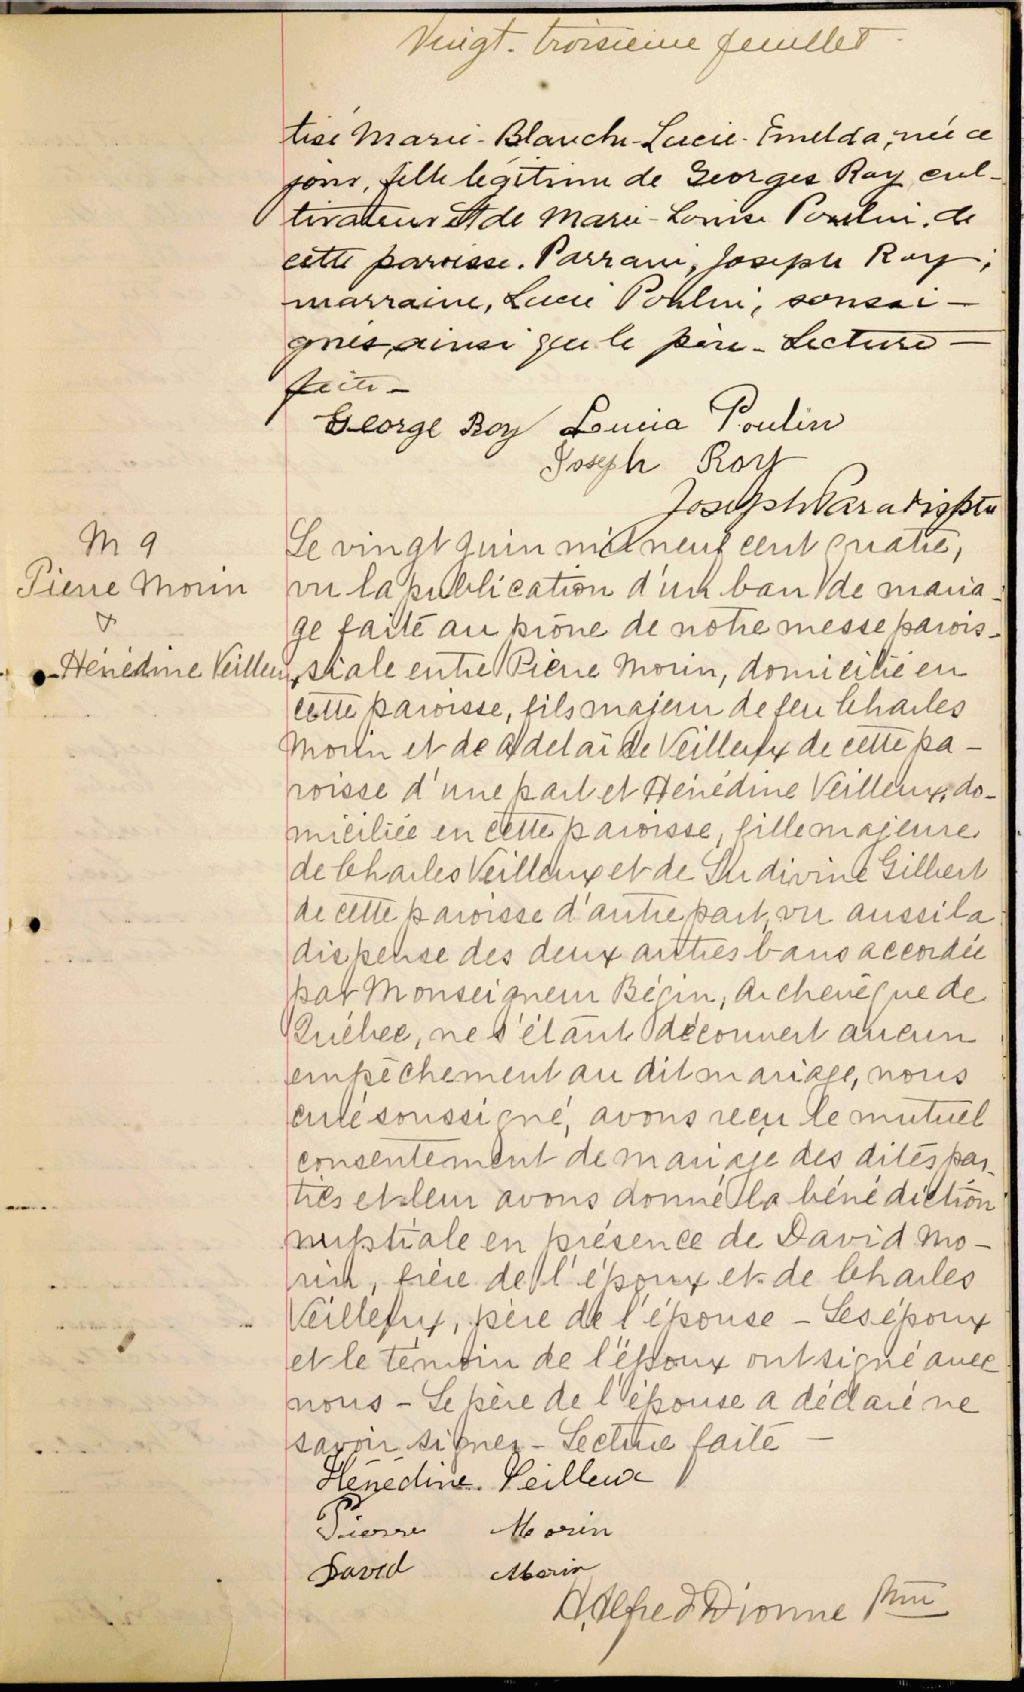 Vingt-troisième feuillet
tisé Marie-Blanche-Lucie-Emelda, née ce
jour, fille légitime de Georges Roy cul-
tivateur et de Marie-Louise Poulin, de
cette paroisse. Parrain, Joseph Roy;
marraine, Lucie Poulin, soussi-
gnés, ainsi que le père - Lecture
faite -
George Roy Lucia Poulin
Joseph Roy
Joseph Paradis ptre
M 9
Pierre Morin
&
Hénédine Veilleux
Le vingt juin mil neuf cent quatre,
vu la publication d'un ban de maria-
ge faite au prône de notre messe parois-
siale entre Pierre Morin, domicilié en
cette paroisse, fils majeur de feu Charles
Morin et de Adelaïde Veilleux de cette pa-
roisse d'une part et Hénédine Veilleux, do-
miciliée en cette paroisse, fille majeure
de Charles Veilleux et de Ludivine Gilbert
de cette paroisse d'autre part, vu aussi la
dispense des deux autres bans accordée
par Monseigneur Bégin, Archevêque de
Québec, ne s'étant découvert aucun
empêchement au dit mariage, nous
curé soussigné, avons reçu le mutuel
consentement de mariage des dites par-
ties et leur avons donné la bénédiction
nuptiale en présence de David Mo-
rin, frère de l'époux et de Charles
Veilleux, père de l'épouse - Les époux
et le témoin de l'époux ont signé avec
nous - Le père de l'épouse a déclaré ne
savoir signer - Lecture faite -
Hénédine Veilleux
Pierre Morin
David Morin
H. Alfred Dionne Ptre